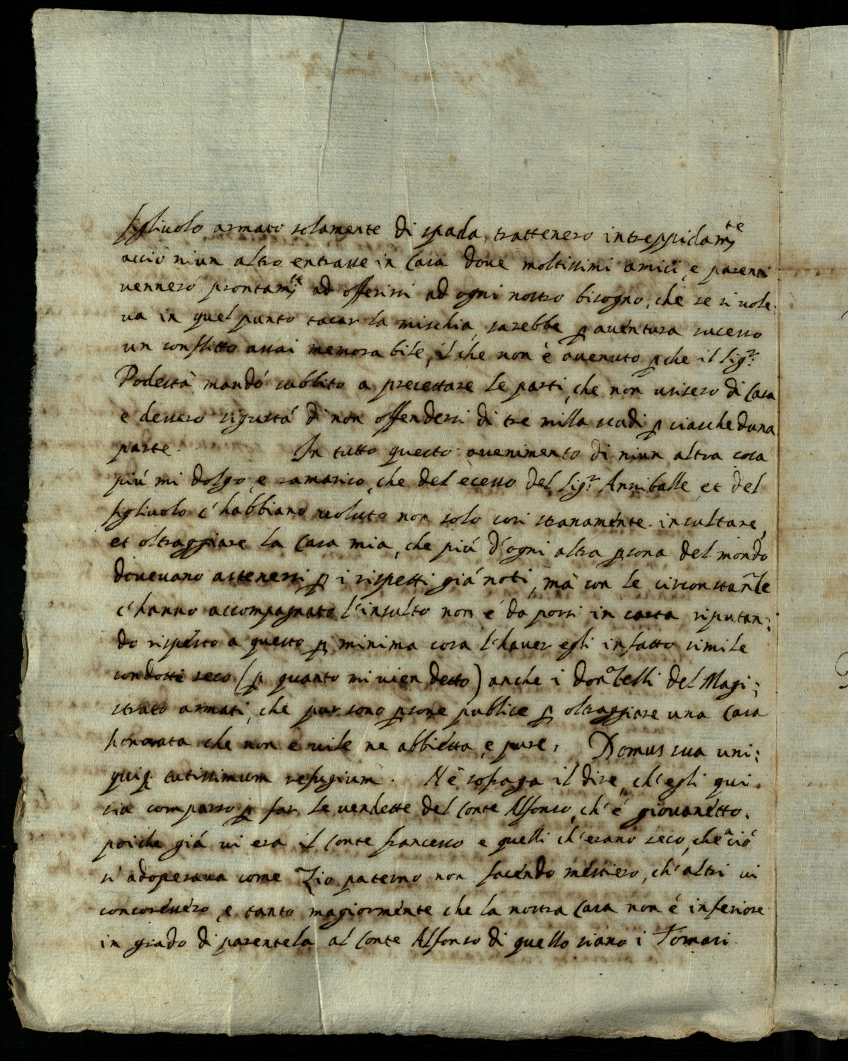 figliuolo armato solamente di spada trattenero intreppidam.te
acciò niun altro entrasse in Casa dove moltissimi amici, e parenti
vennero prontam.te ad offerirsi ad ogni nostro bisogno, che se si vole-
va in quel punto tacar la mischia, sarebbe p aventura sucesso
un conflitto assai memorabile, il che non è avenuto pche il Sig.r
Podestà mandó subbito a precettare le parti, che non usisero di Casa
e dessero sigurtá di non offendersi di tre milla scudi p ciascheduna
parte. In tutto questo avenimento di niun altra cosa
piú mi dolgo, e ramarico, che del ecesso del Sig.r Anniballe et del
figliuolo c'habbiano voluto non solo cosi stranaménte insultare,
et oltraggiare la Casa mia, che piú d'ogni altra psona del mondo
dovevano astenersi p i rispetti giá noti, mà con le circonstanze
c'hanno accompagnato l'insulto non é da porsi in carta riputan:
do rispetto a questo p minima cosa l'haver egli in fatto simile
condotti seco (p quanto mi vien detto) anche i donzelli del Magi:
strato armati, che pur sono psone publice p oltraggiare una Casa
honorata che non è vile ne abbietta, e pure, Domus sua uni:
quiq tutissimum refugium. Nè sofraga il dire, ch'egli qui
sia comparso p far le vendette del Conte Alfonso, ch'é giovanetto.
poiche giá vi era il Conte francesco e quelli ch'erano seco, che ció
s'adoperava come Zio paterno non facéndo méstiero, ch'altri vi
concorréséro, e tanto magiorménte che la nostra Casa non é inferiore
in grado di parentela al Conte Alfonso di quello siano i Tornari